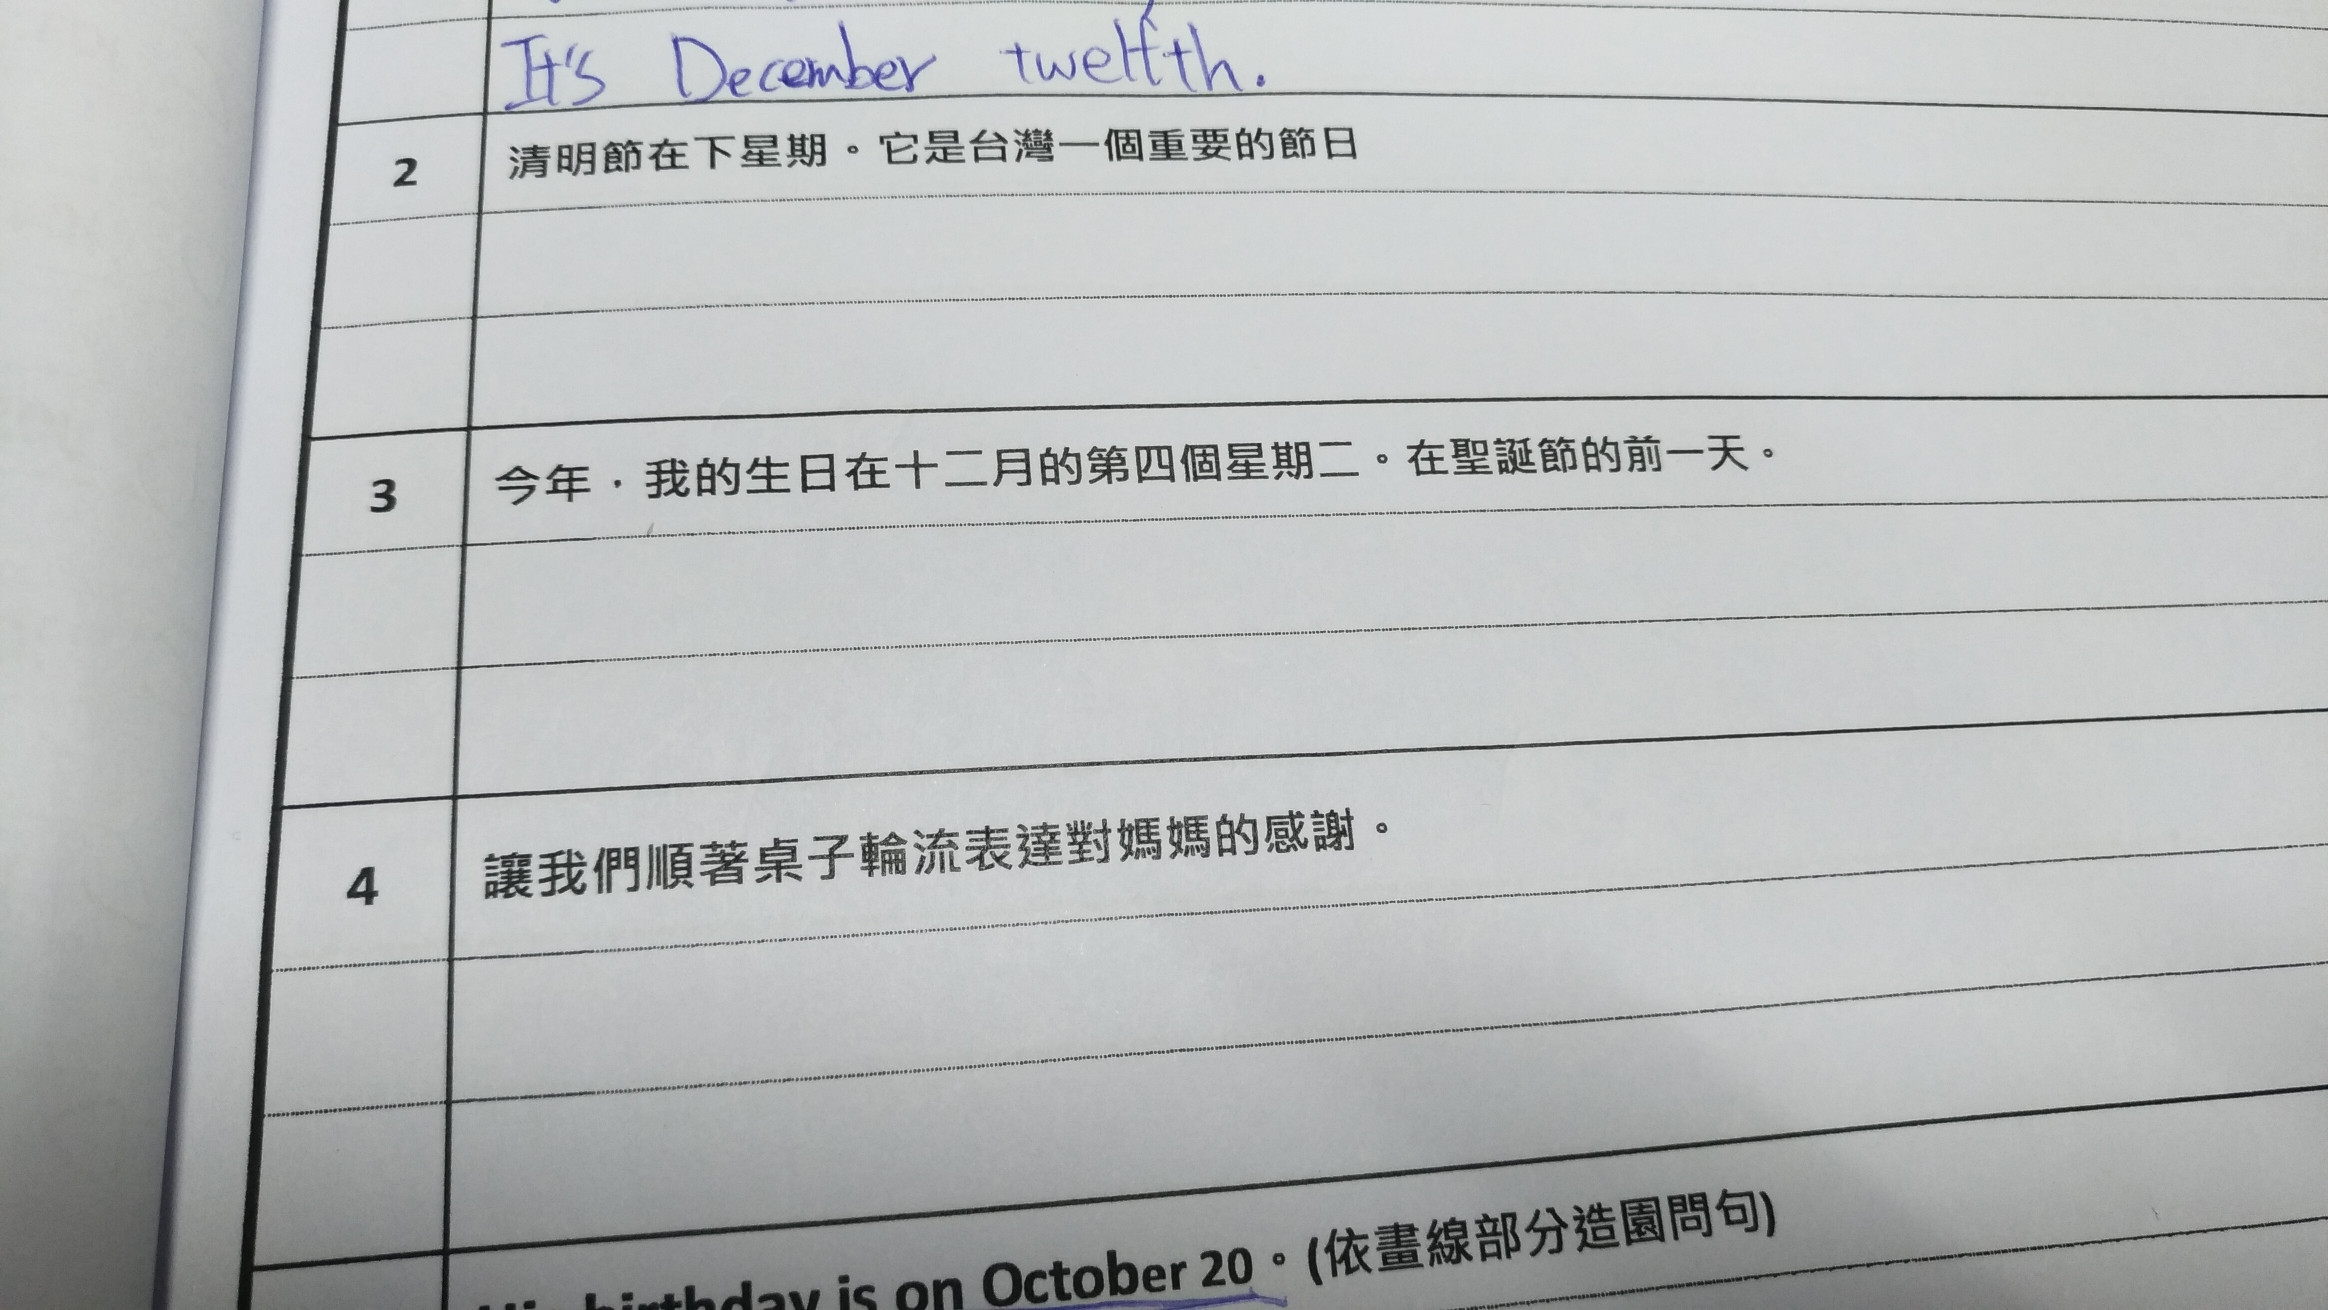 It's December twelfth.
2 清明節在下星期。它是台灣一個重要的節日
3 今年,我的生日在十二月的第四個星期二。在聖誕節的前一天。
4 讓我們順著桌子輪流表達對媽媽的感謝。
birthday is on October 20。(依畫線部分造園問句)